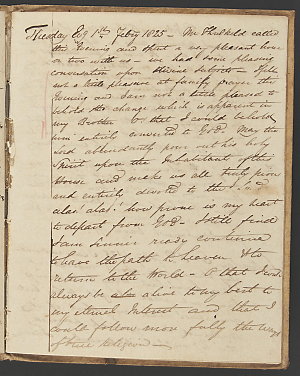 Tuesday Evg 1st Feby 1825 - Mr Thelkeld called
this Evening and spent a very pleasant hour
or two with us - we had some pleasing
conversation upon divine subjects - felt
not a little pleasure at family prayer this
Evening and have not a little pleased to
behold the change which is apparent in
my Brother O that I could behold
him entirely converted to God May the
Lord abundantly pour out his holy
Spirit upon the Inhabitants of this
House and make us all truly pious
and entirely devoted to the Lord
alas alas! how prone is my heart
to depart from God - I still find
I am sinner ready continue
to leave the path to heaven & to
return to the World - O that I could
always be alive to my best to
my eternal Interest and that I
could follow more fully the ways
of true Religion -